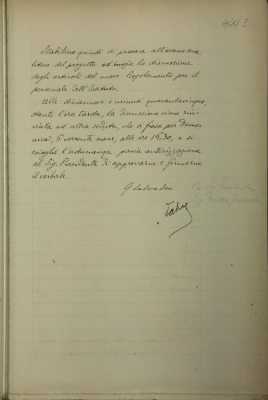 443
Stabilisce quindi di passare all'esame ana-
litico del progetto ed inizia la discussione
degli articoli del nuovo Regolamento per il
personale dell'Istituto.
Alle diciannove e minuti quarantacinque,
stante l'ora tarda, la discussione viene rin-
viata ad altra seduta, che si fissa per
6 corrente mese, alle ore 16.30, e si
scioglie l'adunanza previa autorizzazione
al Sig. Presidente di approvarne e firmarne
il verbale.
G Salvadori